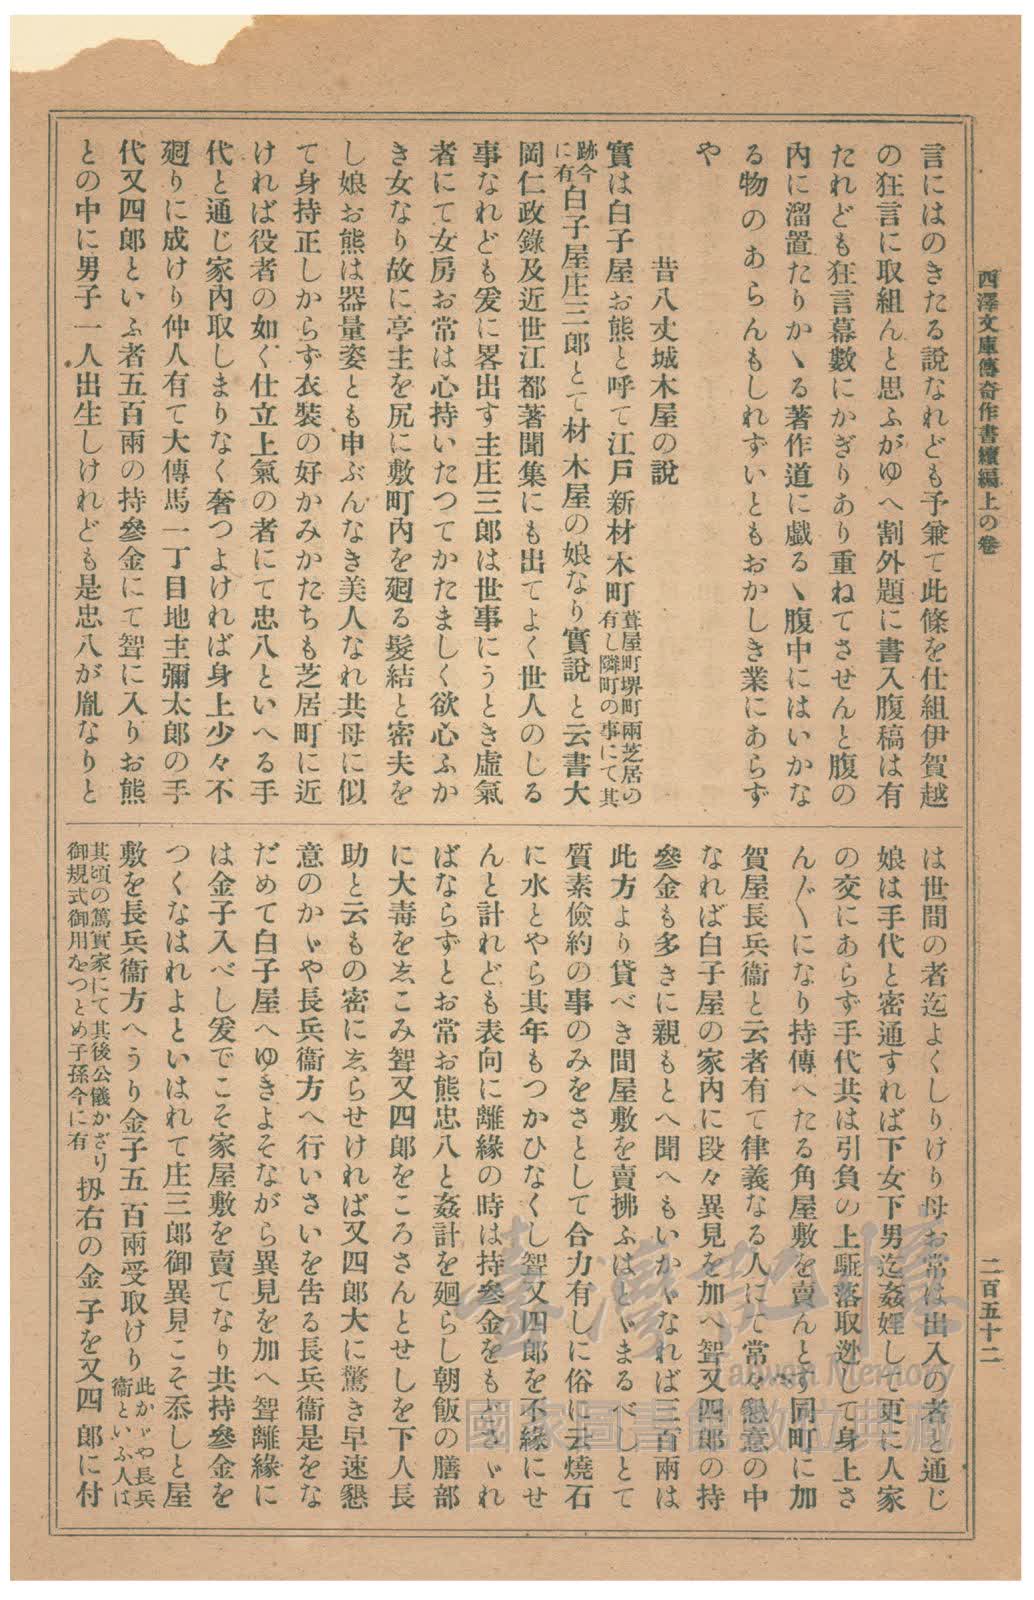 西澤文庫傳奇作書續編上の卷
言にはのきたる説なれども予兼て此條を仕組伊賀越
の狂言に取組んと思ふがゆへ割外題に書入腹稿は有
たれども狂言幕數にかぎりあり重ねてさせんと腹の
內に溜置たりかゝる著作道に戱るゝ腹中にはいかな
る物のあらんもしれずいともおかしき業にあらず
や
昔八丈城木屋の説
實は白子屋お熊と呼て江戶新材木町葺屋町堺町兩芝居の有し隣町の事にて其
跡今に有白子屋庄三郎とて材木屋の娘なり實說と云書大
岡仁政錄及近世江都著聞集にも出てよく世人のしる
事なれども爰に畧出す主庄三郎は世事にうとき虛氣
者にて女房お常は心持いたつてかたましく欲心ふか
き女なり故に亭主を尻に敷町內を廻る髮結と密夫を
し娘お熊は器量姿とも申ぶんなき美人なれ共母に似
て身持正しからず衣裝の好かみかたちも芝居町に近
ければ役者の如く仕立上氣の者にて忠八といへる手
代と通じ家內取しまりなく奢つよければ身上少々不
廻りに成けり仲人有て大傳馬一丁目地主彌太郎の手
代又四郎といふ者五百兩の持參金にて聟に入りお熊
との中に男子一人出生しけれども是忠八が胤なりと
は世間の者迄よくしりけり母お常は出入の者と通じ
娘は手代と密通すれば下女下男迄姦婬して更に人家
の交にあらず手代共は引負の上駈落取迯して身上さ
んぐ〵になり持傳へたる角屋敷を賣んとす同町に加
賀屋長兵衞と云者有て律義なる人にて常々懇意の中
なれば白子屋の家內に段々異見を加へ聟又四郎の持
參金も多きに親もとへ聞へもいかゞなれば三百兩は
此方より貸べき間屋敷を賣拂ふはとゞまるべしとて
質素儉約の事のみをさとして合力有しに俗に云燒石
に水とやら其年もつかひなくし聟又四郎を不緣にせ
んと計れども表向に離緣の時は持參金をもどさゞれ
ばならずとお常お熊忠八と姦計を廻らし朝飯の膳部
に大毒をゑこみ聟又四郎をころさんとせしを下人長
助と云もの密にゑらせければ又四郎大に驚き早速懇
意のかゞや長兵衞方へ行いさいを告る長兵衞是をな
だめて白子屋へゆきよそながら異見を加へ聟離緣に
は金子入べし爰でこそ家屋敷を賣てなり共持參金を
つくなはれよといはれて庄三郎御異見こそ忝しと屋
敷を長兵衞方へうり金子五百兩受取けり此かゞや長兵衞といふ人は
其頃の篤實家にて其後公儀かざり御規式御用をつとめ子孫今に有扨右の金子を又四郎に付
二百五十二
臺灣記憶
Taiwan Memory
國家圖書館數位典藏